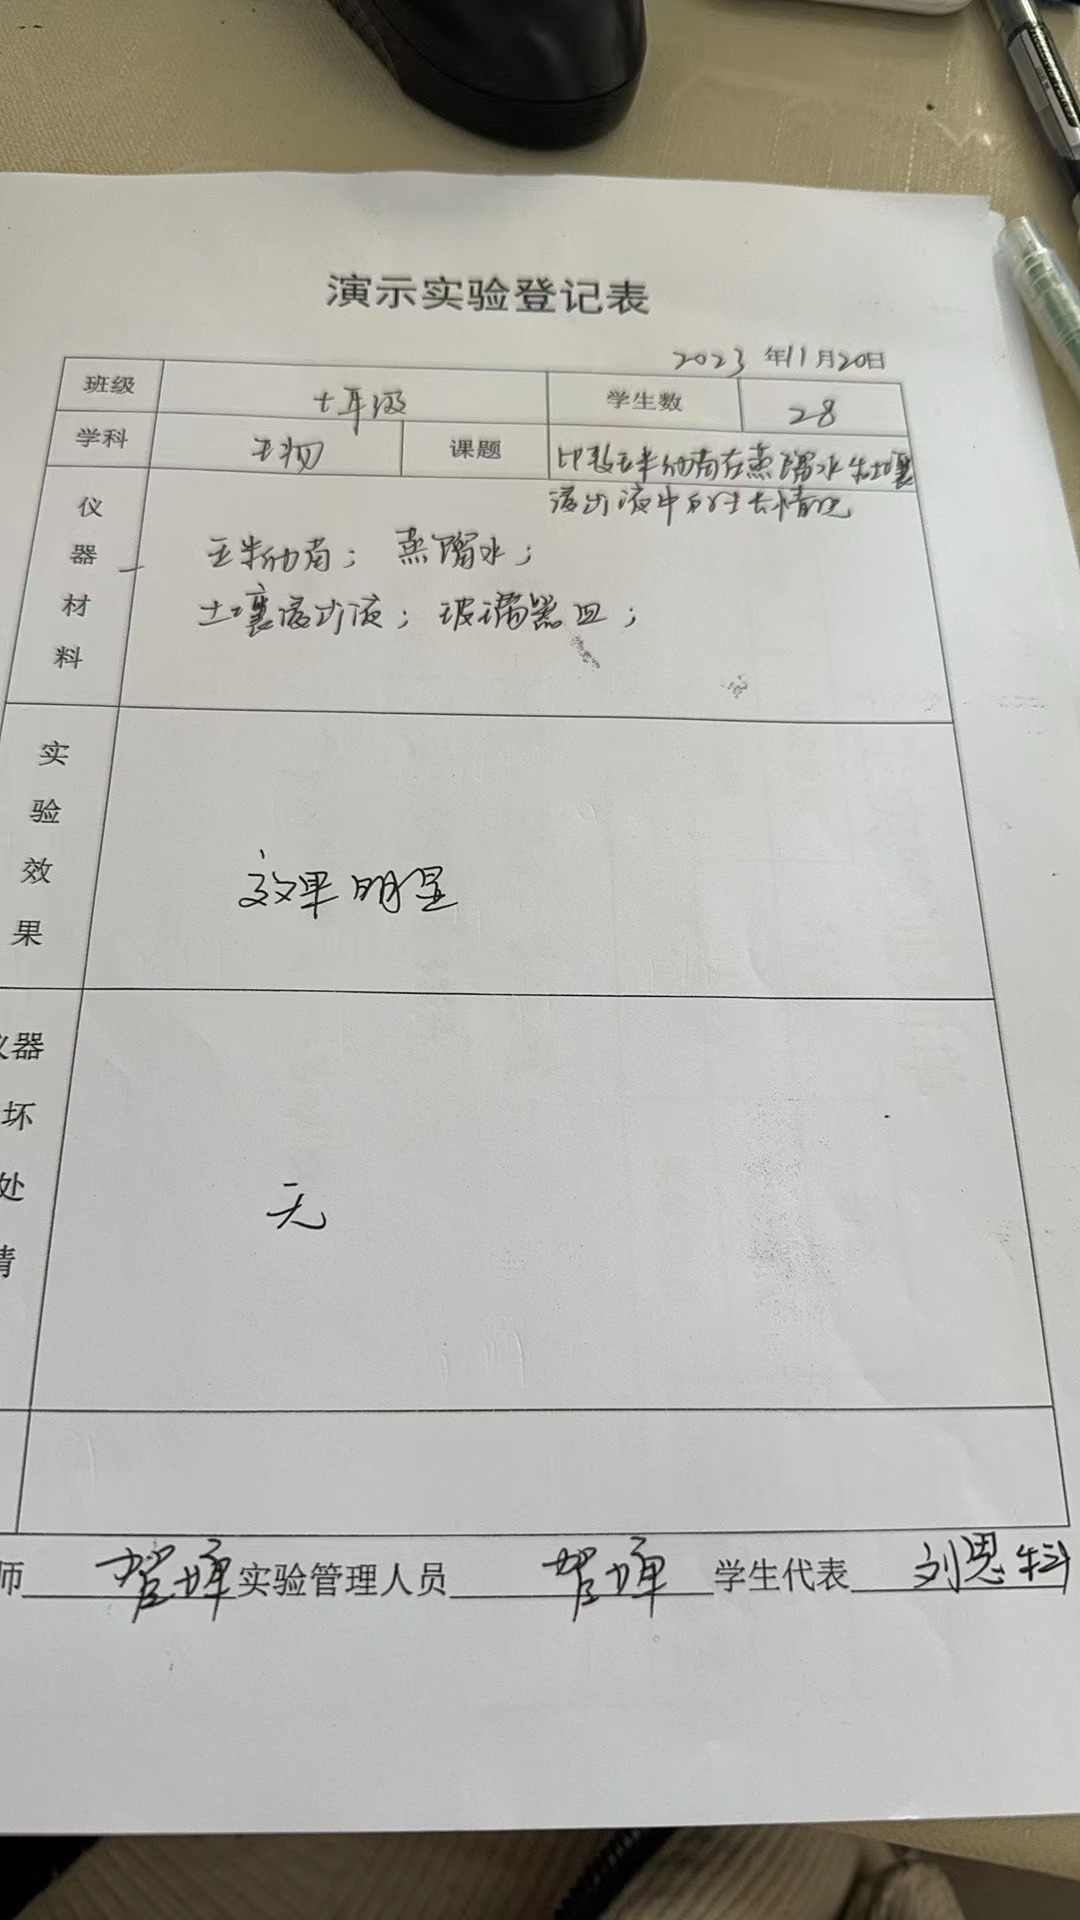 演示实验登记表
2023 年11月20日
班级 七年级 学生数 28
学科 生物 课题 比较玉米幼苗在蒸馏水和土壤
浸出液中的生长情况
仪器材料
玉米幼苗；蒸馏水；
土壤浸出液；玻璃器皿；
实验效果
效果明显
仪器
坏
处
情
无
师 贺婵 实验管理人员 贺婵 学生代表 刘恩科